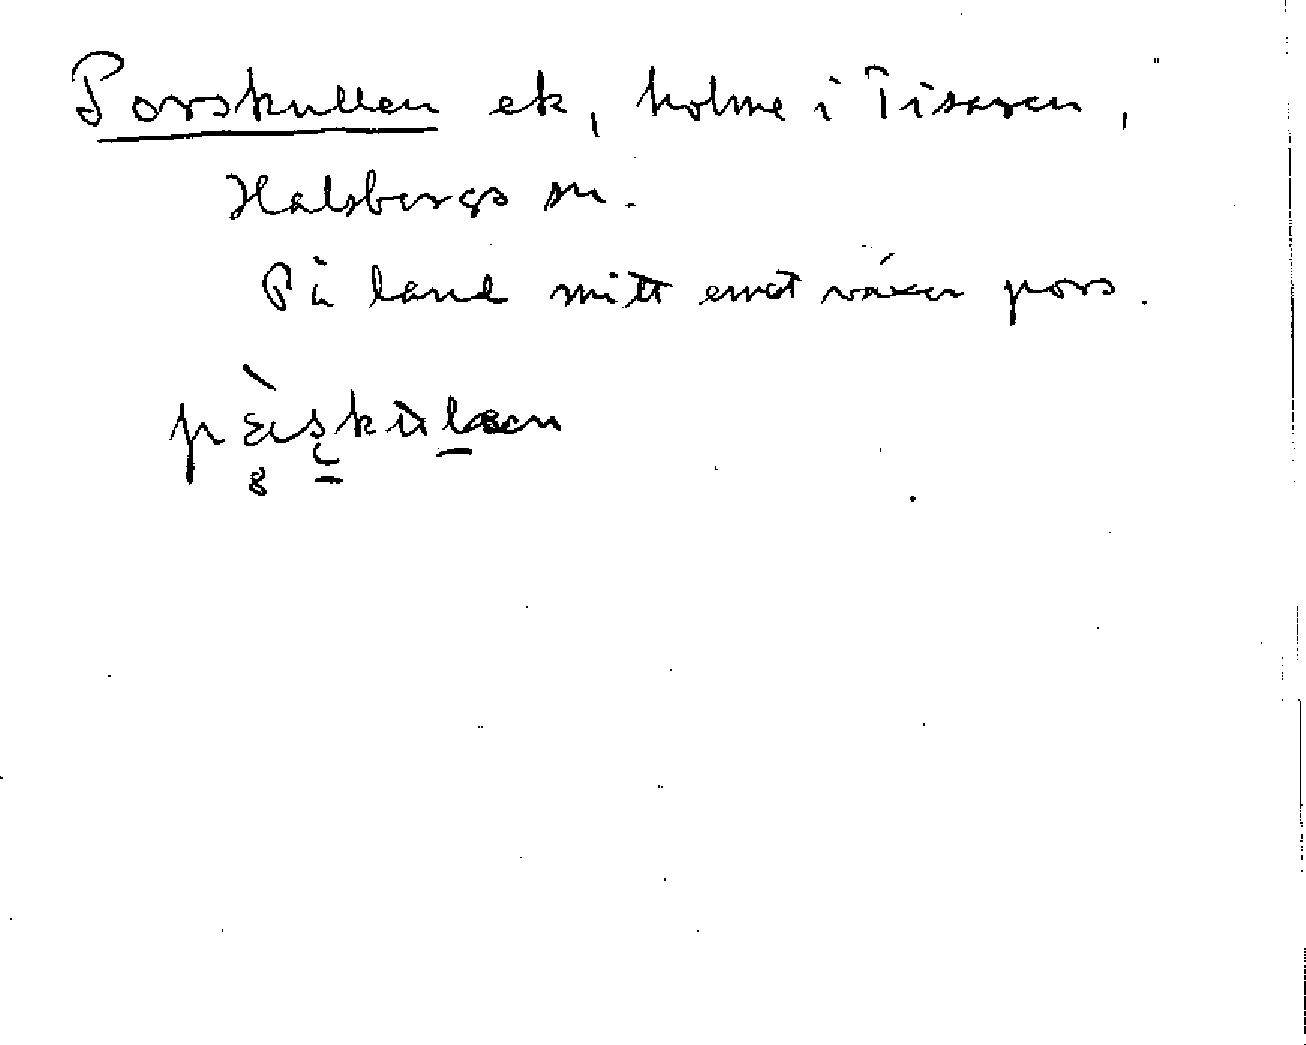 Porskullen ek, holme i Tisaren,
Hallsbergs sn.
På land mitt emot växer pors.